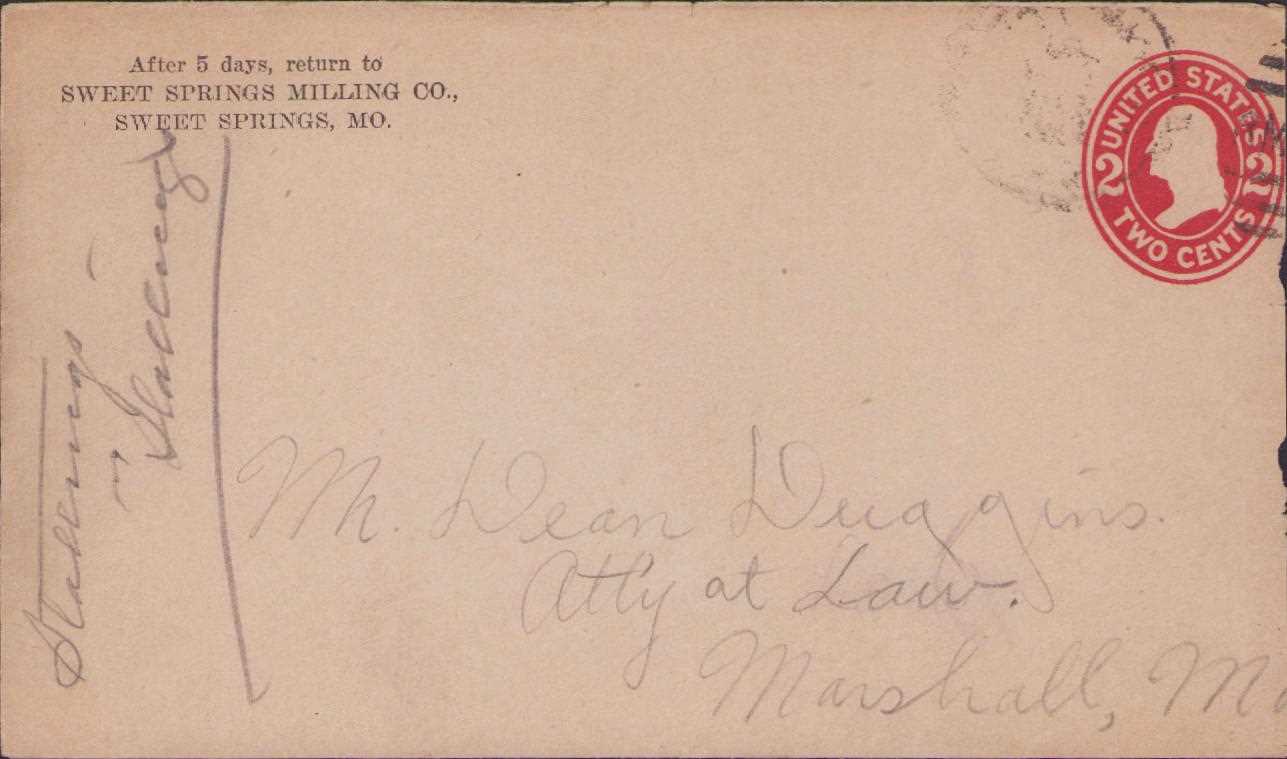 After 5 days, return to
SWEET SPRINGS MILLING CO.,
SWEET SPRINGS, MO.
UNITED STATES
2 2
TWO CENTS
Stallings
vs
Stallings
Mr. Dean Duggins.
Att'y at Law.
Marshall, Mo